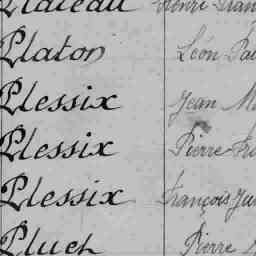 Plateau Henri
Platon Léon
Plessix Jean
Plessix Pierre
Plessix François
Pluch Pierre